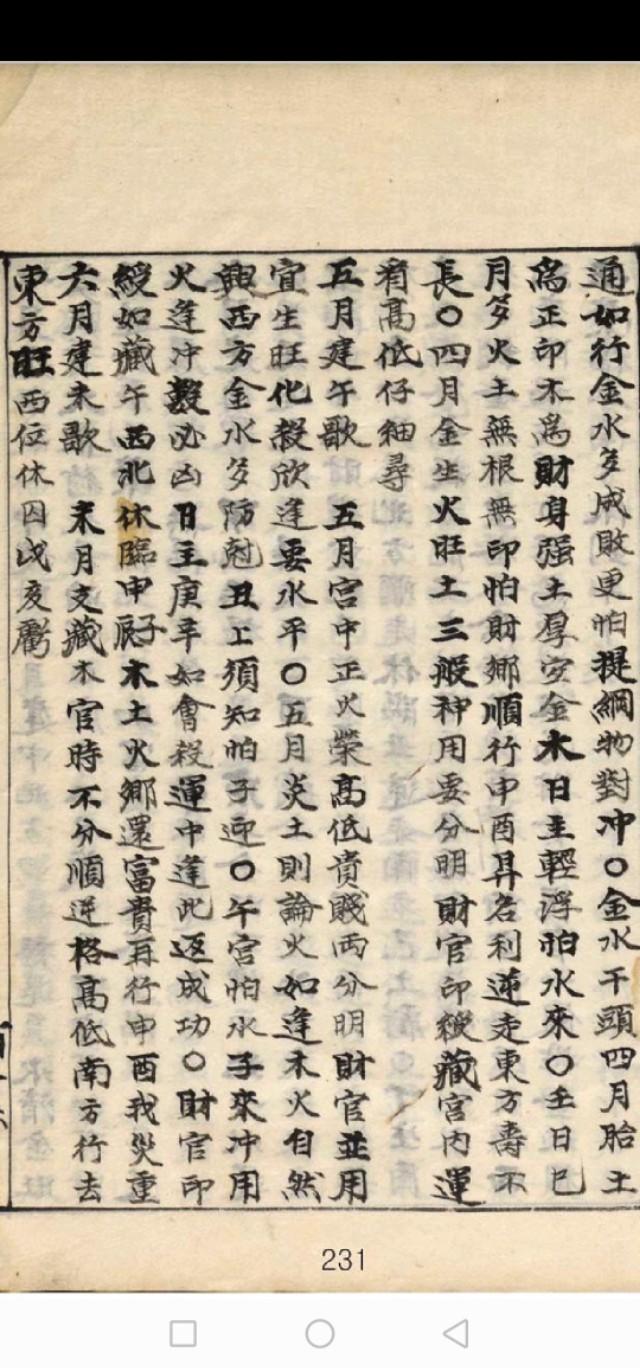 通如行金水多成敗更怕提綱物對冲〇金水干頭四月胎土
為正印木為財身强土厚安金木日主輕浮怕水來〇壬日巳
月多火土無根無印怕財鄉順行申酉昇名利逆走東方壽不
長〇四月金生火旺土三般神用要分明財官印綬藏宮内運
有高低仔細尋
五月建午歌 五月宮中正火榮高低貴賤両分明財官並用
宜生旺化殺欣逢要水平〇五月炎土則論火如逢木火自然
興西方金水多防尅丑上須知怕子迎〇午宮怕水子來冲用
火逢冲數必凶日主庚辛如會殺運中逢此返成功〇財官印
綬如藏午西北休臨申子辰木土火鄉還富貴再行申酉我災重
六月建未歌 未月支藏木官時不分順逆格高低南方行去
東方旺西位休囚戌亥虧
231